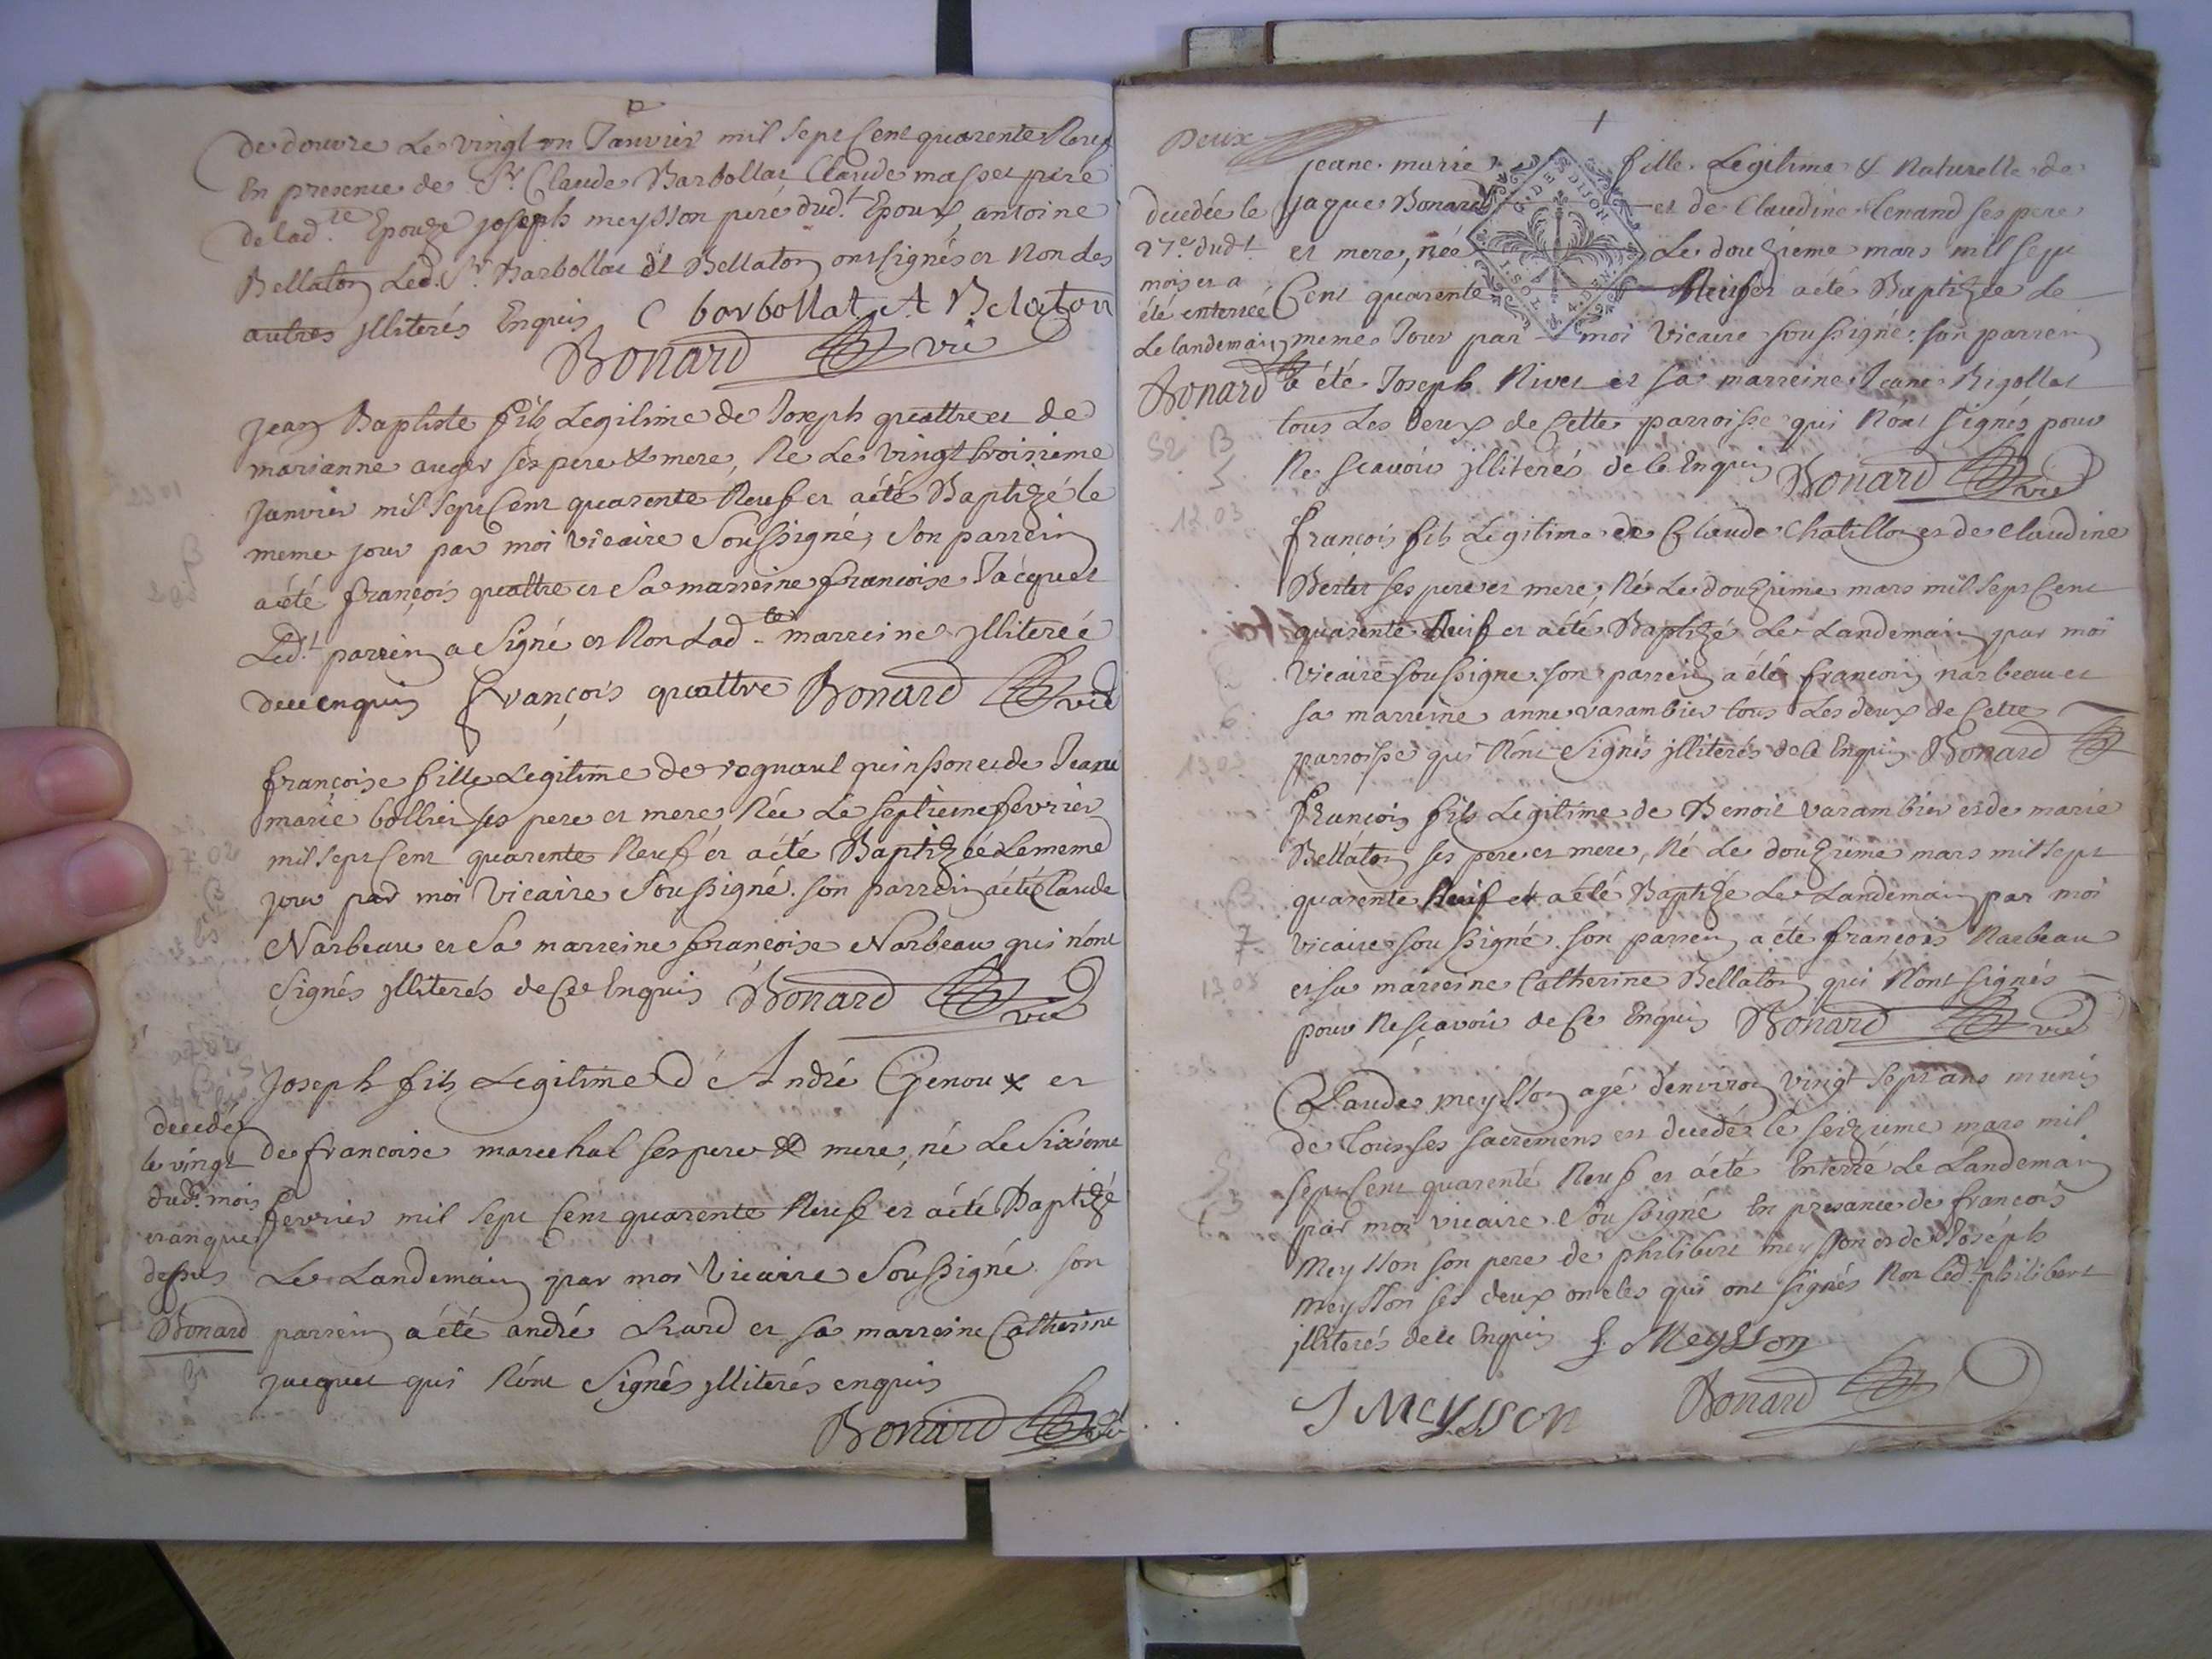 de douvre Le vingt un Janvier mil sept Cent quarente Neuf
En presence de Sr Claude Barbollat Claude masset pere
de lad.te Epouze joseph meysson pere dud.t Epoux antoine
Bellaton Led. Sr. Barbollat et Bellaton ont signés et Non les
autres jlliterés Enquis C barbollat A Belaton
Bonard vic
Jean Baptiste fils Legitime de Joseph quattre et de
marianne auger ses pere & mere, Né Le vingt troisieme
Janvier mil sept Cent quarente Neuf et a été Baptizé le
meme jour par moi vicaire Soussigné, Son parrein
a été françois quattre et Sa marreine francoise Jacquet
Led.t parrein a Signé et Non Lad.te marreine jlliterée
de ce enquis françois quattre Bonard vic
françoise fille Legitime de rognaut quinson et de Jeane
marie bollier ses pere et mere Née Le septieme fevrier
mil sept Cent quarente Neuf et a été Baptizée Le meme
jour par moi Vicaire Soussigné. son parrein a été Claude
Narbeau et Sa marreine françoise Narbeau qui n'ont
Signés jlliterés de Ce Enquis Bonard vic
Joseph fils Legitime d'André Genoux et
de francoise marechal ses pere & mere, né Le Sixième
fevrier mil sept Cent quarente Neuf et a été Baptizé
Le Landemain par moi Vicaire Soussigné son
parrein a été andré et sa marreine Catherine
jacquet qui N'ont Signés jlliterés enquis
Bonard vic
decedé
le vingt
dud.t mois
et an que
dessus
Bonard
Deux
1
jeane marie fille Legitime & Naturelle de
jaque Bonard et de Claudine Tenand ses pere
et mere, née Le douzieme mars mil sept
Cent quarente Neuf et a été Baptizée Le
meme Jour par moi Vicaire soussigné. son parrein
a été Joseph Nivet et sa marreine Jeane Rigollet
tous Les deux de Cette parroisse qui N'ont signés pour
Ne scavoir jlliterés de Ce Enquis Bonard vic
G. DES DIJON
decedée le
27e dud.t
mois et a
été enterrée
Le landemain
Bonard
B
5
12.03
françois fils Legitime de Claude Chatillon et de Claudine
Berter ses pere et mere, Né Le douzieme mars mil sept Cent
quarente Neuf et a été Baptizé Le Landemain par moi
Vicaire soussigné. son parrein a été françois narbeau et
sa marreine anne varambier tous Les deux de Cette
parroisse qui N'ont Signés jlliterés de Ce Enquis Bonard
6
13.03
françois fils Legitime de Benoit varambier et de marie
Bellaton ses pere et mere, Né Le douzieme mars mil sept
quarente Neuf et a été Baptizé Le Landemain par moi
vicaire soussigné. son parrein a été françois Narbeau
et sa marreine Catherine Bellaton qui N'ont signés
pour Ne sçavoir de Ce Enquis Bonard vic
B
7
13.03
Claude meysson agé d'environ vingt sept ans muni
de tous ses sacremens est decedé le seizieme mars mil
sept Cent quarente Neuf et a été Enterré Le Landemain
par moi vicaire soussigné En presance de francois
Meysson son pere de philibert meysson et de Joseph
meysson ses deux oncles qui ont signés Non led.t philibert
jlliterés de ce Enquis f. Meysson
J MEYSSON Bonard